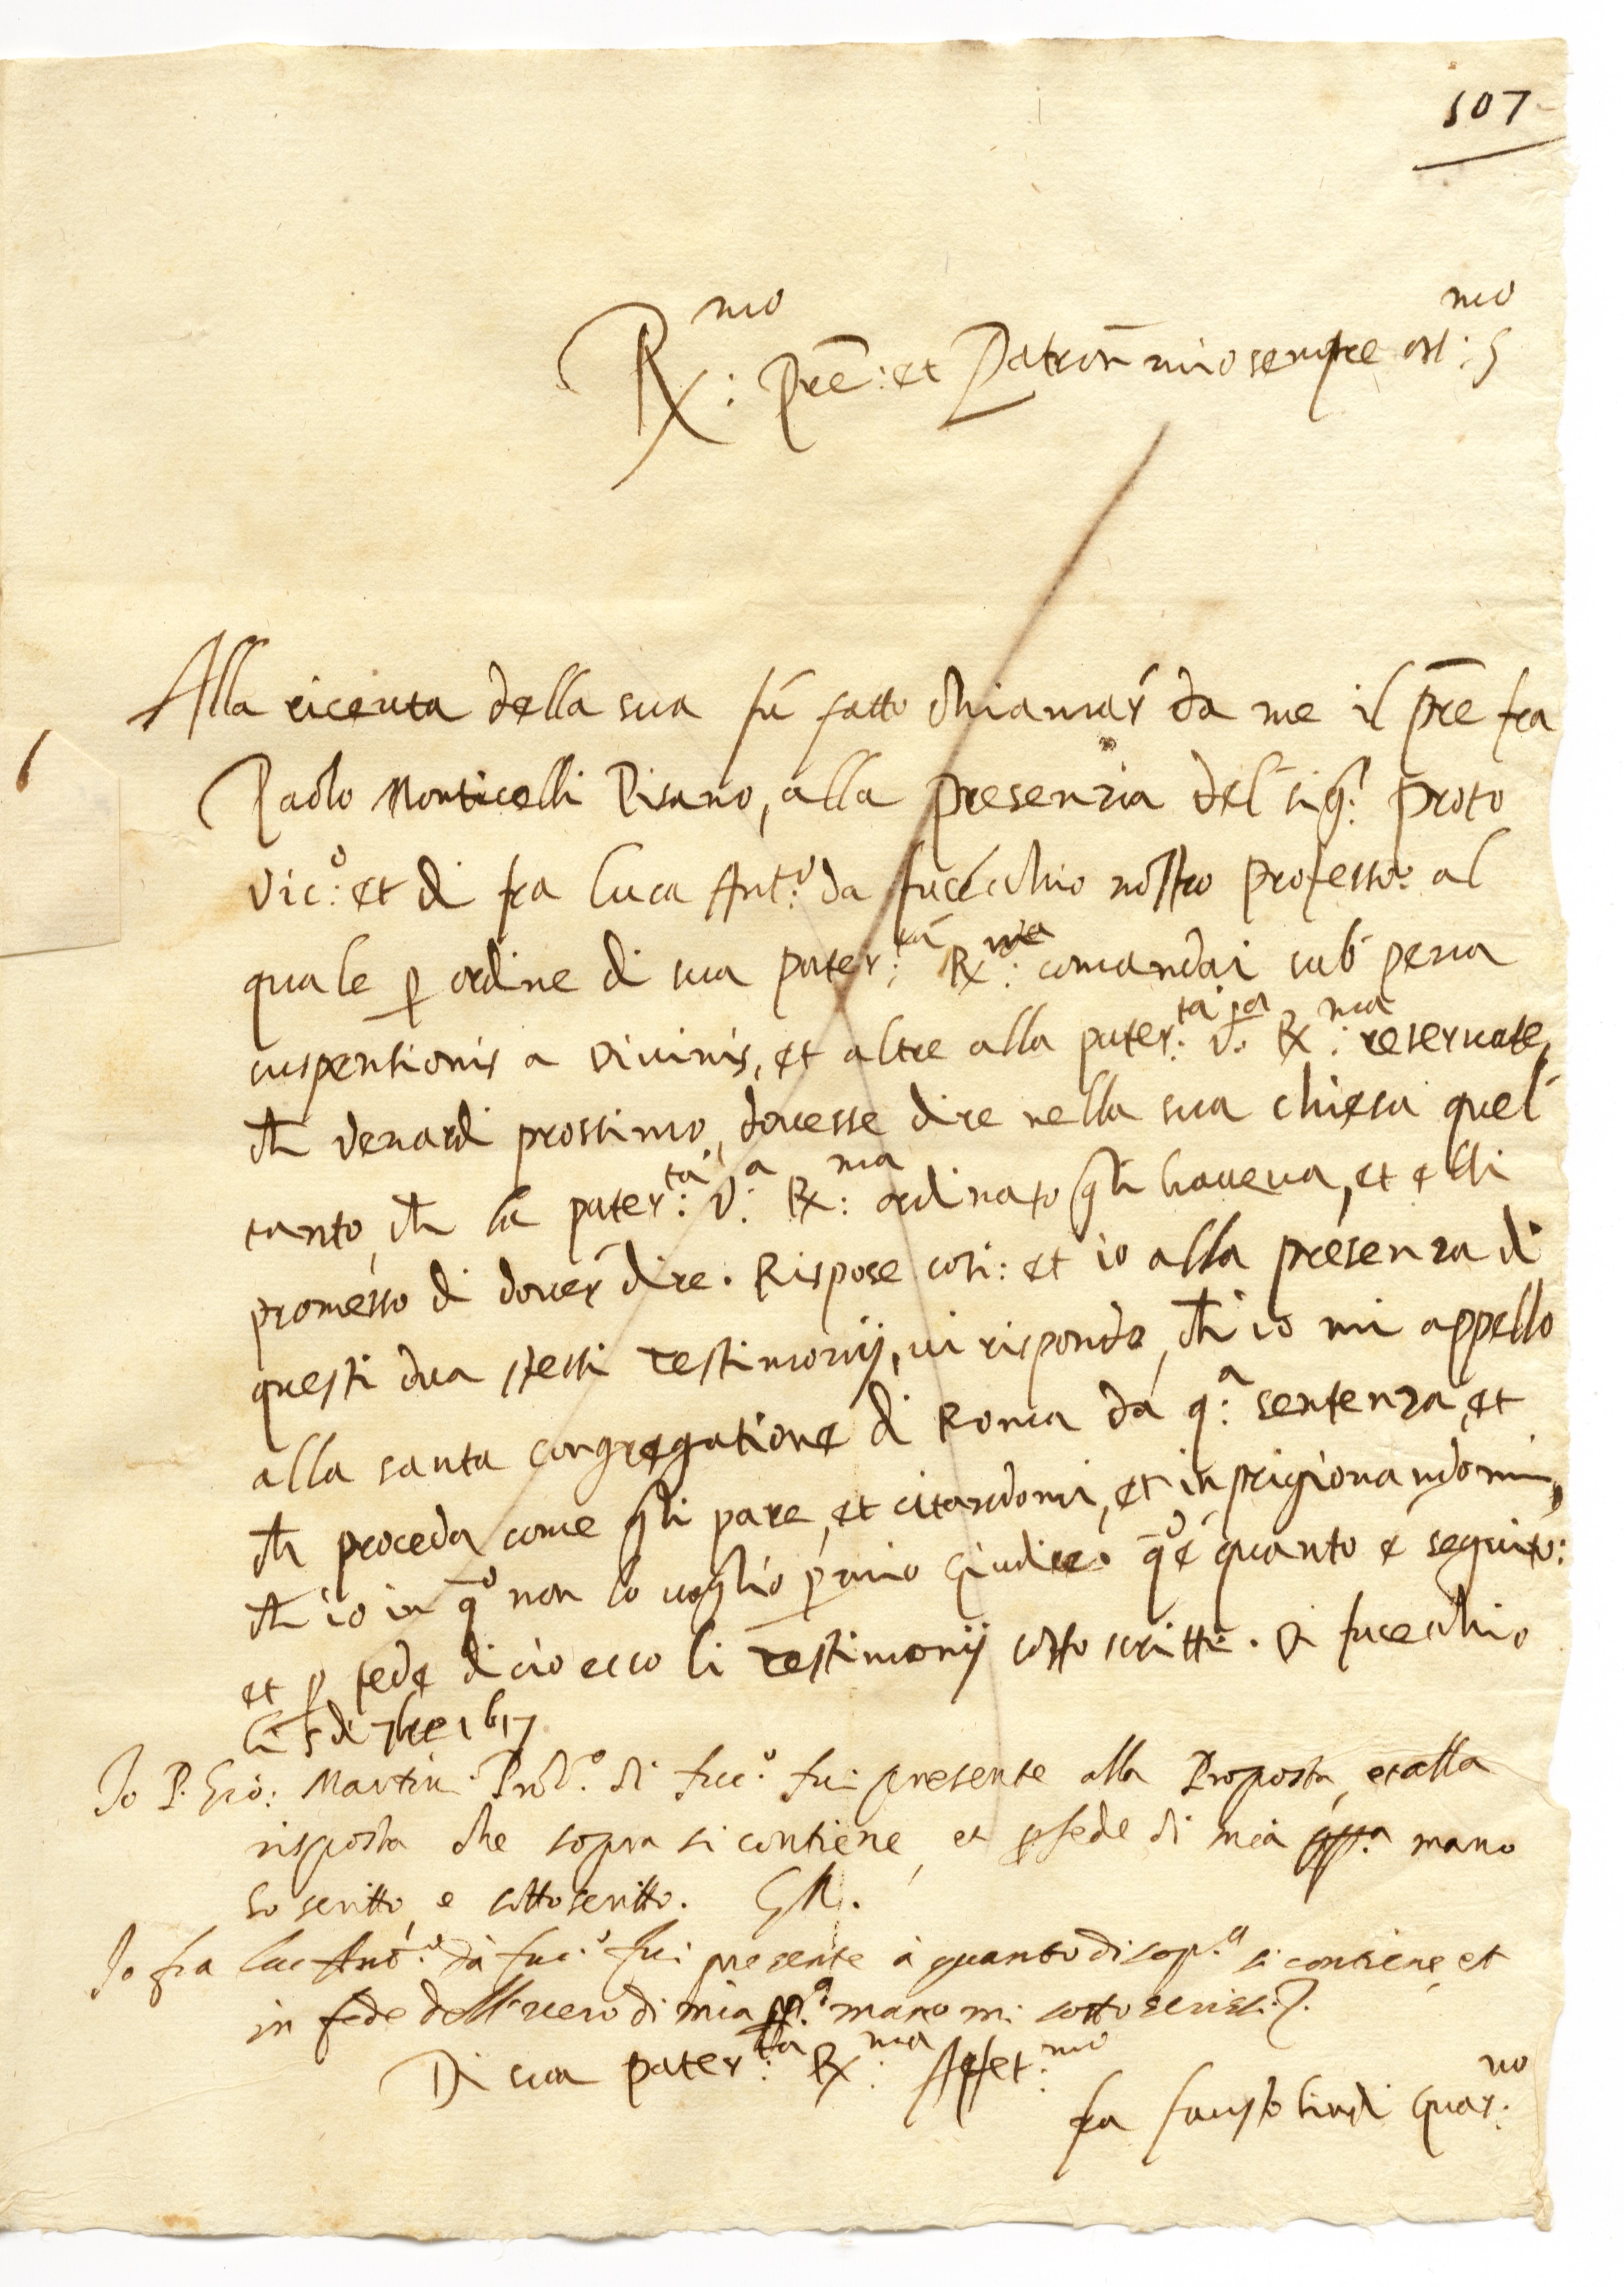 107
R.mo Pre: et Patron mio sempre oss:mo
Alla riceuta della sua fù fatto chiamar da me il pre fra
Paolo Monticelli Pisano, alla presenzia del sig.r proto
vic:o et di fra Luca Ant:o da fucecchio nostro professo: al
quale p ordine di sua pater:tà R:ma comandai sub pena
suspensionis a divinis, et altre alla pater:tà V:a R:ma reservate,
ch venardi prossimo, dovesse dire nella sua chiesa quel
tanto, ch la pater:tà V:a R:ma ordinato gli haveva, et elli
promesso di dover dire. Rispose cosi: et io alla presenza di
questi dua stessi testimonij, vi rispondo, ch io mi appello
alla santa congregatione di Roma da q:a sentenza, et
ch proceda come gli pare, et citandomi, et inprigionandomi,
ch io in qo non lo voglio p mio Giudice. qo è quanto è seguito:
et p fede di ciò ecco li testimonij sotto scritti. Di fucechio
li 5 di 7bre 1617
Io P. Gio: Martin Prov.o di fuc.o fui presente alla Proposta, et alla
risposta che sopra si contiene, et p fede di mia pp.a mano
ho scritto, e sottoscritto.
Io fra Luc Ant.o da fuc.o fui presente à quanto di sop.a si contiene, et
in fede dell vero di mia pp.a mano mi sottoscrissi.
Di sua pater:tà R:ma Affet:mo
fra fausto Guar:no